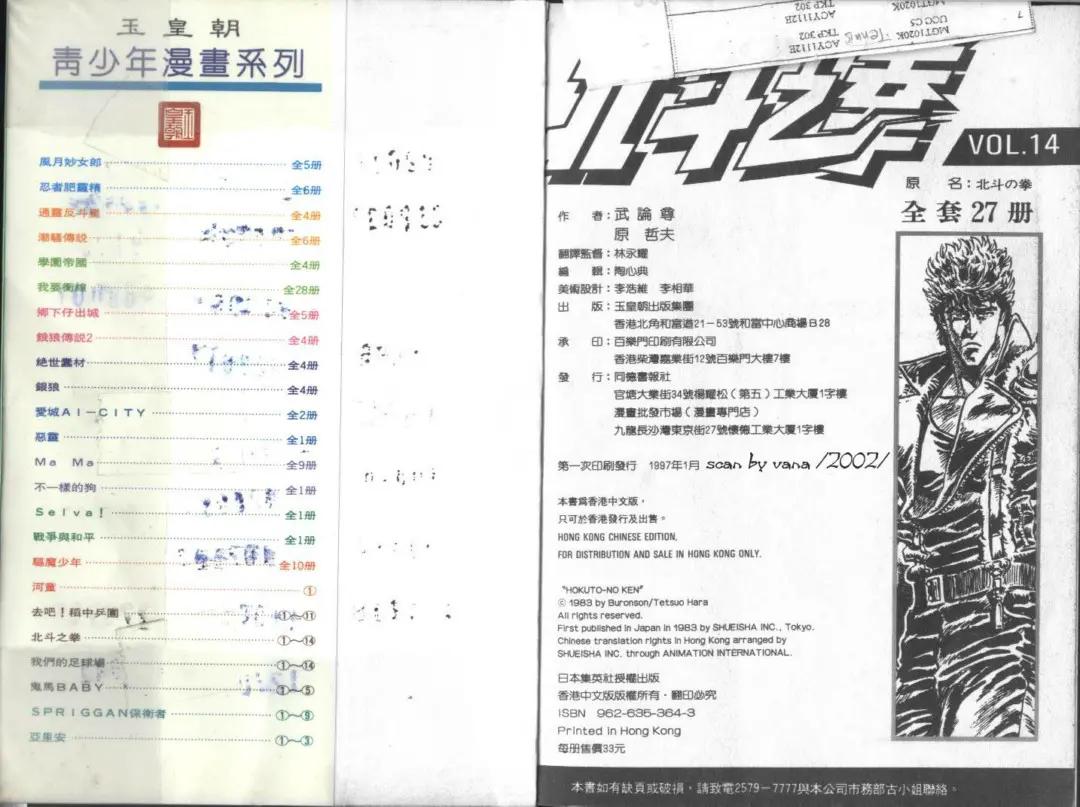 玉皇朝
青少年漫畫系列
風月妙女郎 全5册
忍者肥靈精 全6册
通靈反斗星 全4册
潮騷傳說 全6册
學園帝國 全4册
我要衝線 全28册
鄉下仔出城 全5册
餓狼傳說2 全4册
絕世蠢材 全4册
銀狼 全4册
愛城AI－CITY 全2册
惡靈 全1册
Ma Ma 全9册
不一樣的狗 全1册
Selva! 全1册
戰爭與和平 全1册
驅魔少年 全10册
河童 ①
去吧！稻中乒團 ①～⑪
北斗之拳 ①～⑭
我們的足球場 ①～⑭
鬼馬BABY ①～⑤
SPRIGGAN保衛者 ①～⑨
亞里安 ①～③
MGT1020K
UCC C5
MGT1020K - Tennis
ACY1112E
TKP 302
ACY1112E
TKP 302
北斗之拳
VOL.14
原 名：北斗の拳
全套27册
作 者：武論尊
原 哲夫
翻譯監督：林永耀
編 輯：陶心典
美術設計：李浩維 李相華
出 版：玉皇朝出版集團
香港北角和富道21－53號和富中心商場B28
承 印：百樂門印刷有限公司
香港柴灣嘉業街12號百樂門大樓7樓
發 行：同德書報社
官塘大業街34號楊耀松（第五）工業大廈1字樓
漫畫批發市場（漫畫專門店）
九龍長沙灣東京街27號懷德工業大廈1字樓
第一次印刷發行 1997年1月 scan by vana /2002/
本書爲香港中文版，
只可於香港發行及出售。
HONG KONG CHINESE EDITION,
FOR DISTRIBUTION AND SALE IN HONG KONG ONLY.
"HOKUTO-NO KEN"
© 1983 by Buronson/Tetsuo Hara
All rights reserved.
First published in Japan in 1983 by SHUEISHA INC., Tokyo.
Chinese translation rights in Hong Kong arranged by
SHUEISHA INC. through ANIMATION INTERNATIONAL.
日本集英社授權出版
香港中文版版權所有・翻印必究
ISBN 962-635-364-3
Printed in Hong Kong
每册售價33元
本書如有缺頁或破損，請致電2579－7777與本公司市務部古小姐聯絡。